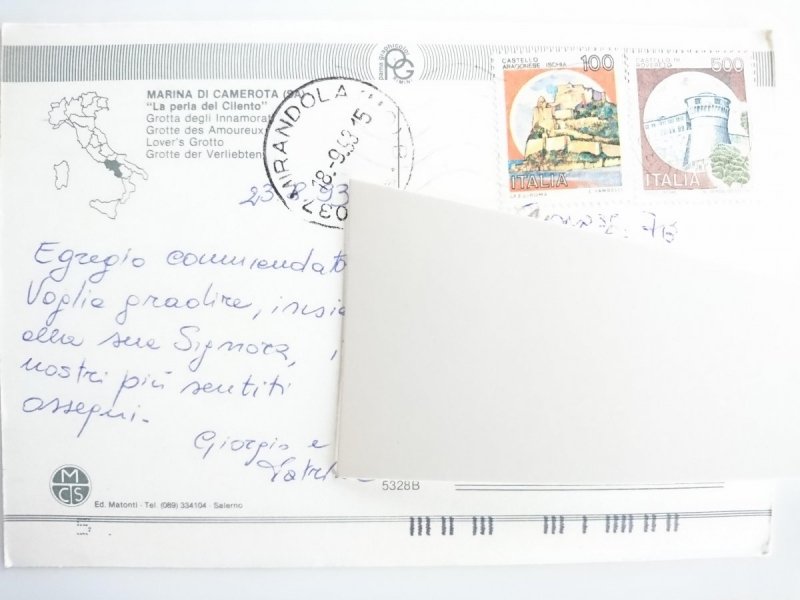 MARINA DI CAMEROTA (SA)
"La perla del Cilento"
Grotta degli Innamorati
Grotte des Amoureux
Lover's Grotto
Grotte der Verliebten
CASTELLO ARAGONESE ISCHIA 100
ITALIA
CASTELLO DI ROVERETO 500
ITALIA
MIRANDOLA
18.-9.93 15
23.8.93
Egregio commendato
Voglia gradire, insie
alla sua Signora, i
nostri più sentiti
ossequi.
Giorgio e
MCS
Ed. Matonti - Tel. (089) 334104 - Salerno
5328B